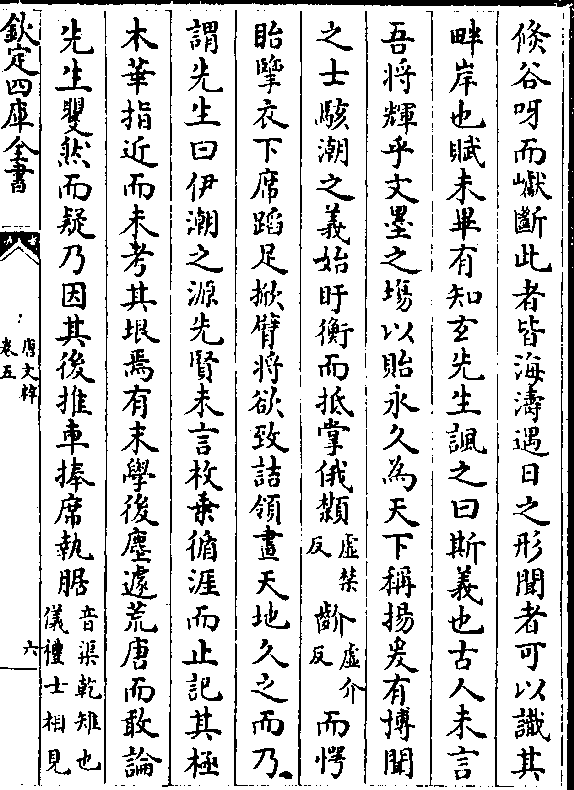 倏谷呀而嶽斷此者皆海濤遇日之形聞者可以識其
畔岸也賦未畢有知玄先生諷之曰斯義也古人未言
吾將輝乎文墨之場以貽永久為天下稱揚爰有博聞
之士駭潮之義始盱衡而抵掌俄顡虛禁反齘虛介反而愕
眙攣衣下席蹈足掀臂將欲致詰領畫天地久之而乃
謂先生曰伊潮之源先賢未言枚乗循涯而止記其極
木華指近而未考其垠焉有末學後塵遽荒唐而敢論
先生矍然而疑乃因其後推車捧席執腒音渠乾雉也儀禮士相見
欽定四庫全書
唐文粹
卷五
六